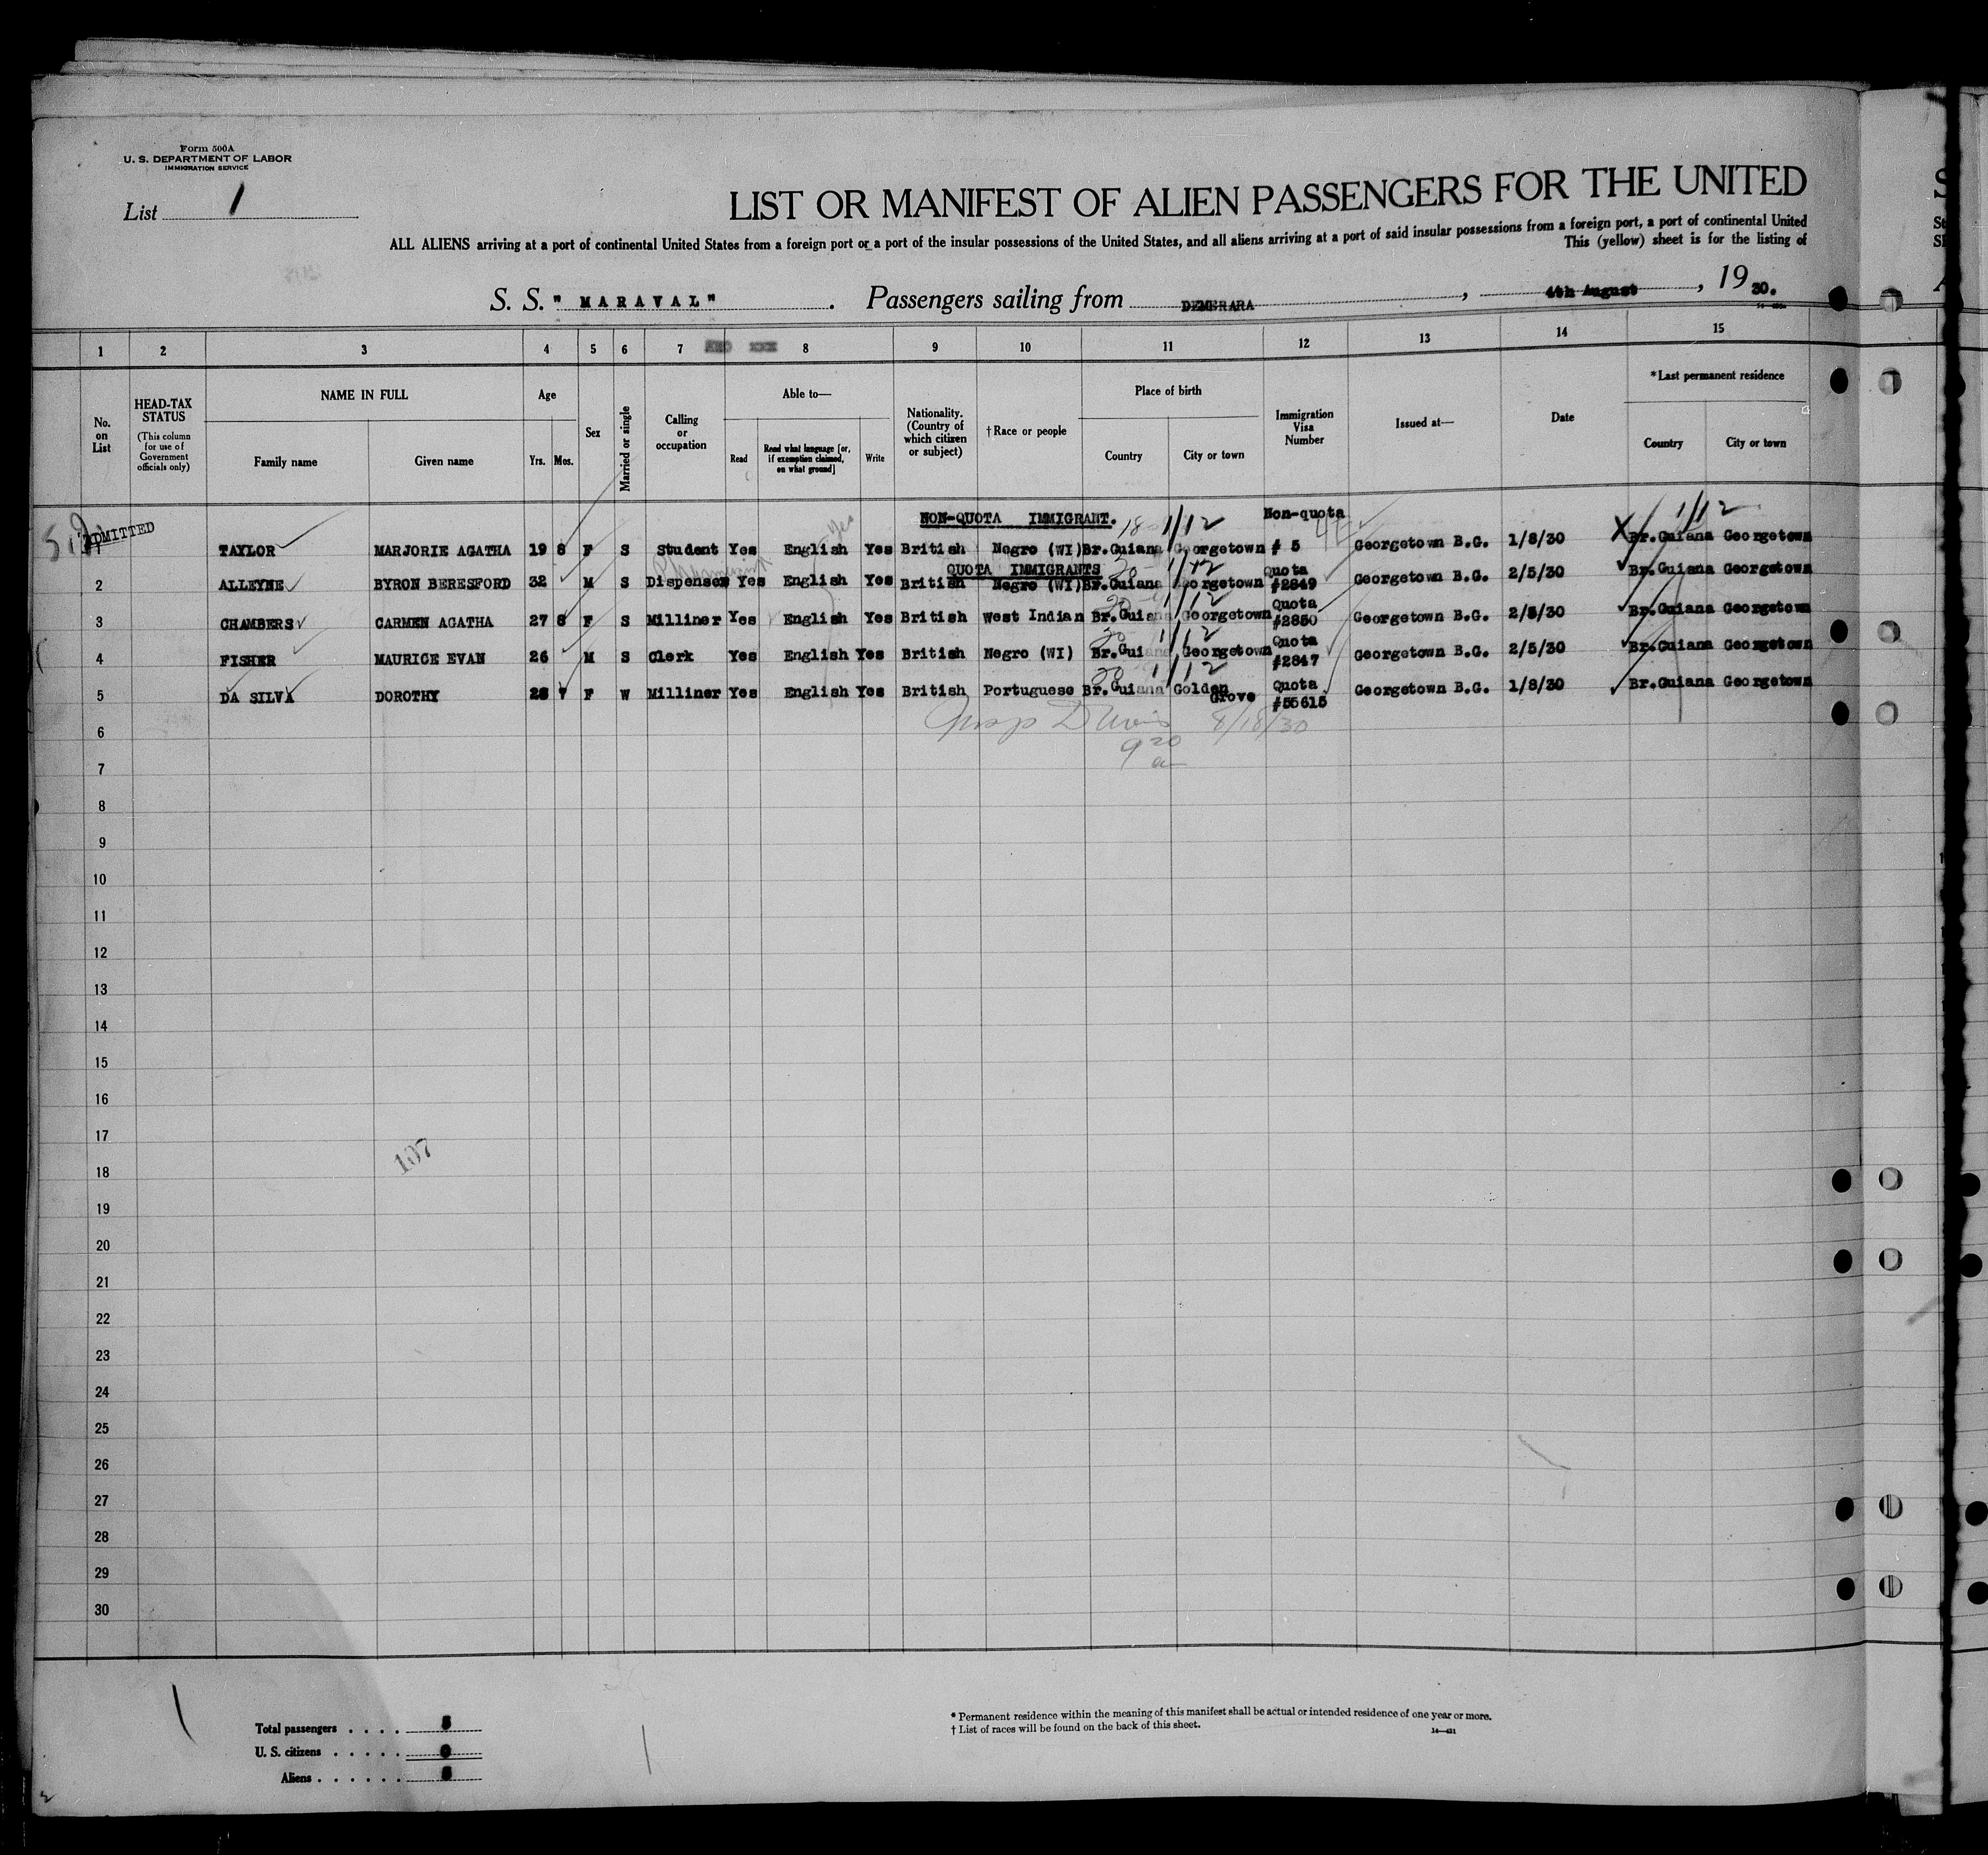 Form 500A
U. S. DEPARTMENT OF LABOR
IMMIGRATION SERVICE
List 1
LIST OR MANIFEST OF ALIEN PASSENGERS FOR THE UNITED
ALL ALIENS arriving at a port of continental United States from a foreign port or a port of the insular possessions of the United States, and all aliens arriving at a port of said insular possessions from a foreign port, a port of continental United
This (yellow) sheet is for the listing of
S. S. " MARAVAL" . Passengers sailing from DEMERARA , 4th August , 19 30.
1 2 3 4 5 6 7 8 9 10 11 12 13 14 15
No. on List
HEAD-TAX STATUS
(This column for use of Government officials only)
NAME IN FULL
Family name Given name
Age
Yrs. Mos.
Sex
Married or single
Calling or occupation
Able to—
Read
Read what language [or, if exemption claimed, on what ground]
Write
Nationality. (Country of which citizen or subject)
†Race or people
Place of birth
Country City or town
Immigration Visa Number
Issued at—
Date
*Last permanent residence
Country City or town
ADMITTED
NON-QUOTA IMMIGRANT. 18 1/12 Non-quota 1/12
1 TAYLOR MARJORIE AGATHA 19 8 F S Student Yes English Yes British Negro (WI) Br.Guiana Georgetown # 5 Georgetown B.G. 1/8/30 X Br.Guiana Georgetown
QUOTA IMMIGRANTS 20 1/12 Quota
2 ALLEYNE BYRON BERESFORD 32 M S Dispenser Yes English Yes British Negro (WI) Br.Guiana Georgetown #2849 Georgetown B.G. 2/5/30 Br.Guiana Georgetown
20 1/12 Quota
3 CHAMBERS CARMEN AGATHA 27 8 F S Milliner Yes English Yes British West Indian Br.Guiana Georgetown #2850 Georgetown B.G. 2/5/30 Br.Guiana Georgetown
20 1/12 Quota
4 FISHER MAURICE EVAN 26 M S Clerk Yes English Yes British Negro (WI) Br.Guiana Georgetown #2847 Georgetown B.G. 2/5/30 Br.Guiana Georgetown
20 1/12 Quota
5 DA SILVA DOROTHY 28 7 F W Milliner Yes English Yes British Portuguese Br.Guiana Golden Grove #55615 Georgetown B.G. 1/8/30 Br.Guiana Georgetown
8/18/30
6
9 20
a
7
8
9
10
11
12
13
14
15
16
17
107
18
19
20
21
22
23
24
25
26
27
28
29
30
Total passengers . . . . 5
U. S. citizens . . . . . 0
Aliens . . . . . . 5
* Permanent residence within the meaning of this manifest shall be actual or intended residence of one year or more.
† List of races will be found on the back of this sheet.